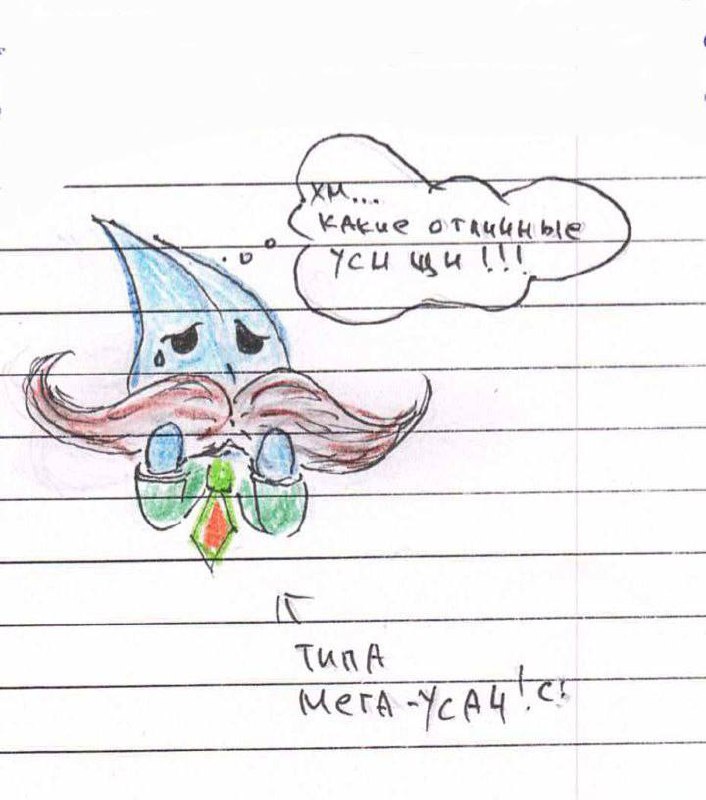 ХМ...
КАКИЕ ОТЛИЧНЫЕ
УСИЩИ!!!
ТИПА
МЕГА-УСАЧ!